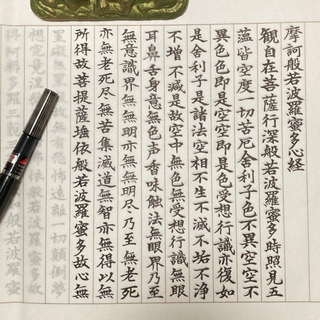 摩訶般若波羅蜜多心経
観自在菩薩行深般若波羅蜜多時照見五
蘊皆空度一切苦厄舎利子色不異空空不
異色色即是空空即是色受想行識亦復如
是舎利子是諸法空相不生不滅不垢不浄
不増不減是故空中無色無受想行識無眼
耳鼻舌身意無色声香味触法無眼界乃至
無意識界無無明亦無無明尽乃至無老死
亦無老死尽無苦集滅道無智亦無得以無
所得故菩提薩埵依般若波羅蜜多故心無
罣礙無罣礙故無有恐怖遠離一切顛倒夢
想究竟涅槃 依般若波羅蜜多故
得 般若波羅蜜